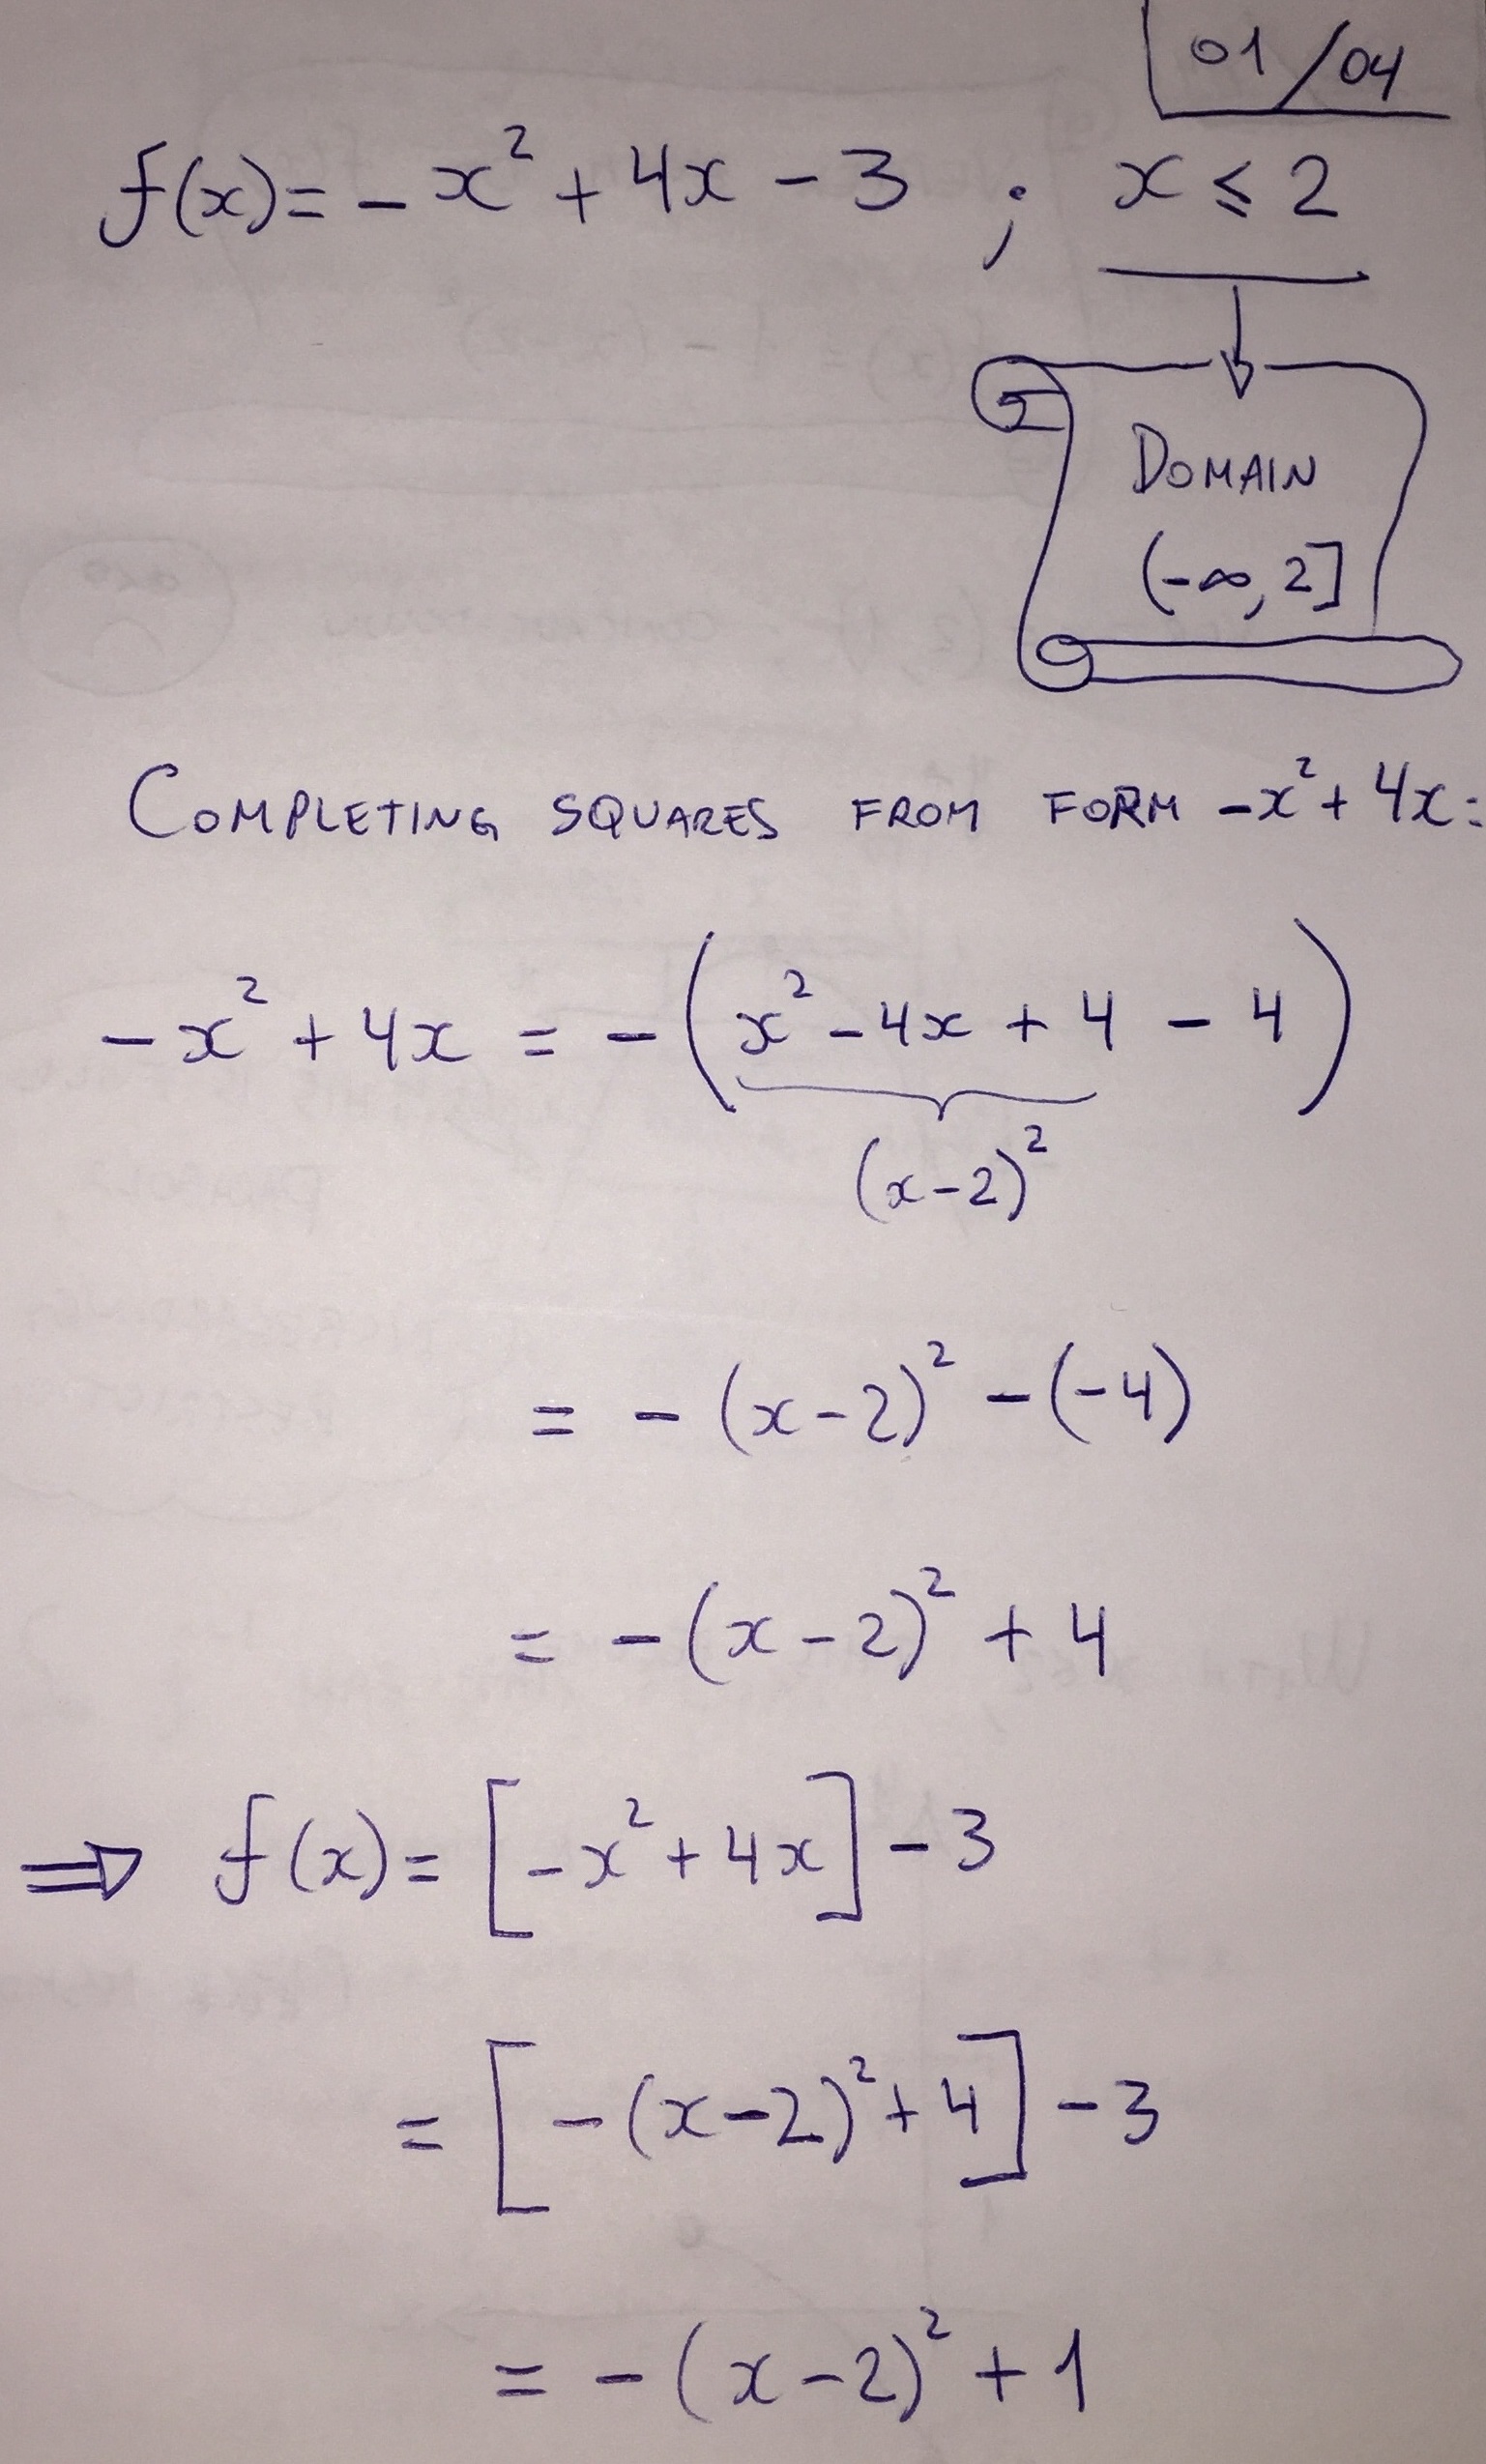 01/04
f(x)= -x² + 4x - 3 ; x ≤ 2
DOMAIN
(-∞, 2]
COMPLETING SQUARES FROM FORM -x² + 4x:
-x² + 4x = -(x² - 4x + 4 - 4)
(x-2)²
= -(x-2)² - (-4)
= -(x-2)² + 4
⇒ f(x)= [-x² + 4x] - 3
= [-(x-2)² + 4] - 3
= -(x-2)² + 1